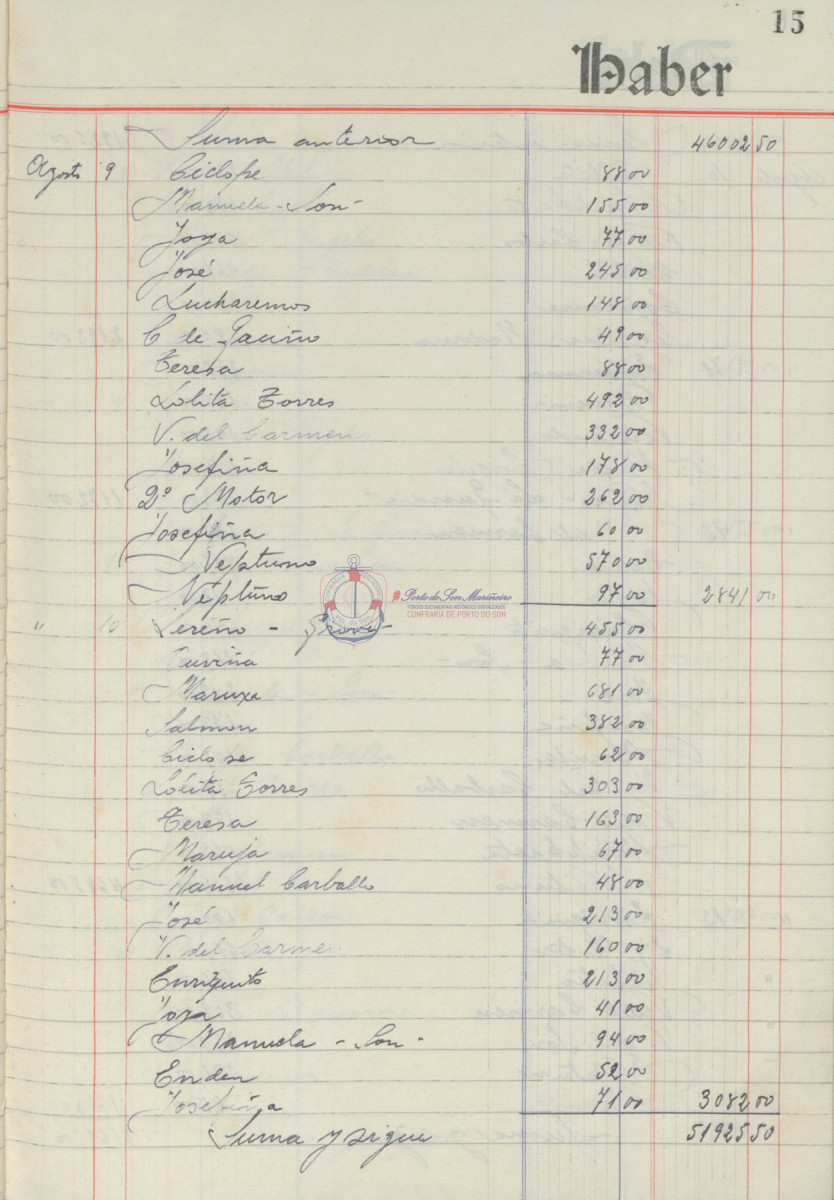 15
Haber
Suma anterior 46002 50
Agosto 9 Ciclope 88 00
Manuela - Son - 155 00
Joya 77 00
José 245 00
Lucharemos 148 00
C de Gaciño 49 00
Teresa 88 00
Lolita Torres 492 00
V. del Carmen 332 00
Josefiña 178 00
2º Motor 262 00
Josefiña 60 00
Neptuno 570 00
Neptuno 97 00 2841 00
#PortodoSonMariñeiro
FONDOS DOCUMENTAIS HISTÓRICOS DIXITALIZADOS
CONFRARÍA DE PORTO DO SON
" 10 Lereño - Grove 455 00
77 00
Maruxa 681 00
Salmon 382 00
Ciclope 62 00
Lolita Torres 303 00
Teresa 163 00
Maruja 67 00
Manuel Carballo 48 00
José 213 00
V. del Carmen 160 00
Enriquito 213 00
Joya 41 00
Manuela - Son - 94 00
Enden 52 00
Josefiña 71 00 3082 00
Suma y sigue 51925 50